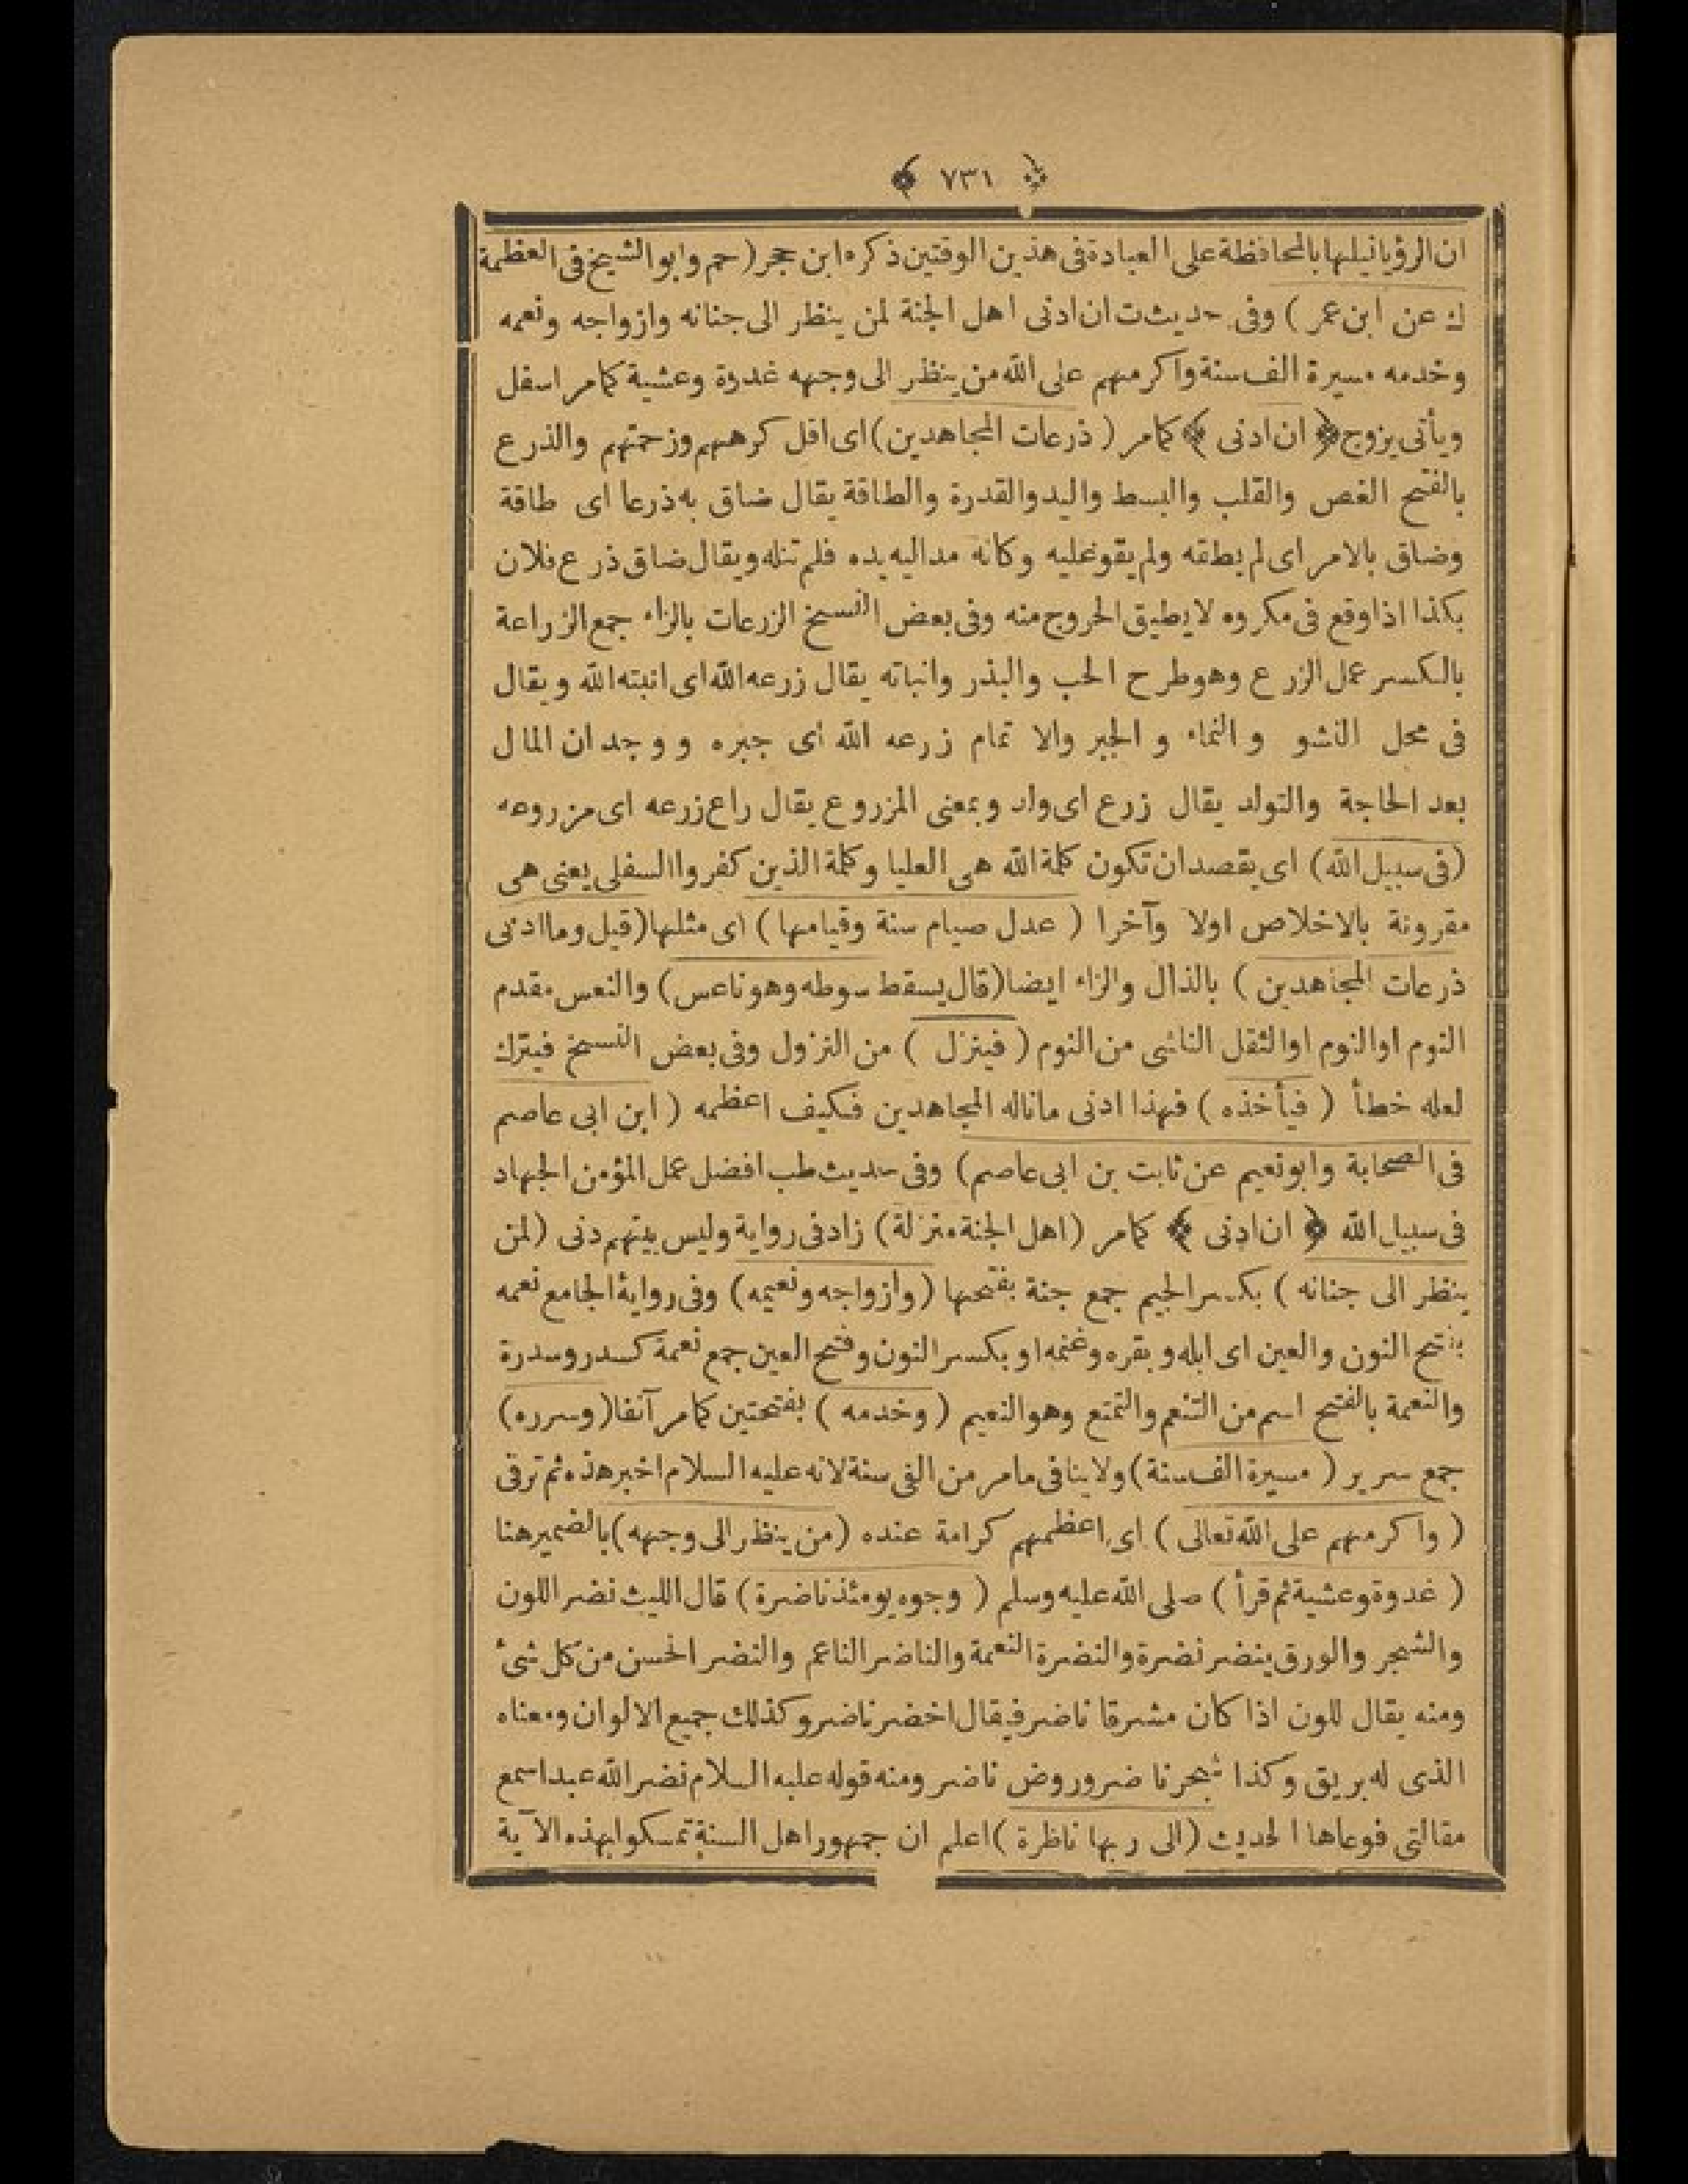 ﴿ ٧٣١ ﴾
ان الرؤيا نيلها بالمحافظة على العبادة فى هذين الوقتين ذكره ابن حجر (حم وابو الشيخ فى العظمة
ك عن ابن عمر ) وفى حديث ت ان ادنى اهل الجنة لمن ينظر الى جنانه وازواجه ونعمه
وخدمه مسيرة الف سنة واكرمهم على الله من ينظر الى وجهه غدوة وعشية كمامر اسفل
ويأتى يزوج ﴿ ان ادنى ﴾ كمامر ( ذرعات المجاهدين) اى اقل كرههم وزحمتهم والذرع
بالفتح الغص والقلب والبسط واليد والقدرة والطاقة يقال ضاق به ذرعا اى طاقة
وضاق بالامر اى لم يطقه ولم يقو عليه وكانه مد اليه يده فلم تنله ويقال ضاق ذرع فلان
بكذا اذا وقع فى مكروه لا يطيق الخروج منه وفى بعض النسخ الزرعات بالزاء جمع الزراعة
بالكسر عمل الزرع وهو طرح الحب والبذر وانباته يقال زرعه الله اى انبته الله ويقال
فى محل النشو و النماء و الجبر والا تمام زرعه الله اى جبره و وجدان المال
بعد الحاجة والتولد يقال زرع اى ولد وبمعنى المزروع يقال راع زرعه اى مزروعه
(فى سبيل الله) اى يقصد ان تكون كلمة الله هى العليا وكلمة الذين كفروا السفلى يعنى هى
مقرونة بالاخلاص اولا وآخرا ( عدل صيام سنة وقيامها ) اى مثلها (قيل وما ادنى
ذرعات المجاهدين ) بالذال والزاء ايضا (قال يسقط سوطه وهو ناعس) والنعس مقدم
النوم او النوم او الثقل الناشى من النوم ( فينزل ) من النزول وفى بعض النسخ فيترك
لعله خطأ ( فيأخذه ) فهذا ادنى ماناله المجاهدين فكيف اعظمه ( ابن ابى عاصم
فى الصحابة وابو نعيم عن ثابت بن ابى عاصم) وفى حديث طب افضل عمل المؤمن الجهاد
فى سبيل الله ﴿ ان ادنى ﴾ كمامر (اهل الجنة منزلة) زاد فى رواية وليس بينهم دنى (لمن
ينظر الى جنانه ) بكسر الجيم جمع جنة بفتحها (وازواجه ونعيمه) وفى رواية الجامع نعمه
بفتح النون والعين اى ابله وبقره وغنمه او بكسر النون وفتح العين جمع نعمة كسدر وسدرة
والنعمة بالفتح اسم من التنعم والتمتع وهو النعيم ( وخدمه ) بفتحتين كمامر آنفا (وسرره)
جمع سرير ( مسيرة الف سنة) ولا ينافى مامر من الفى سنة لانه عليه السلام اخبر هذه ثم ترقى
( واكرمهم على الله تعالى ) اى اعظمهم كرامة عنده (من ينظر الى وجهه) بالضمير هنا
( غدوة وعشية ثم قرأ ) صلى الله عليه وسلم ( وجوه يومئذ ناضرة) قال الليث نضر اللون
والشجر والورق ينضر نضرة والنضرة النعمة والناضر الناعم والنضر الحسن من كل شئ
ومنه يقال للون اذا كان مشرقا ناضر فيقال اخضر ناضر وكذلك جميع الالوان ومعناه
الذى له بريق وكذا شجر ناضر وروض ناضر ومنه قوله عليه السلام نضر الله عبدا سمع
مقالتى فوعاها الحديث (الى ربها ناظرة) اعلم ان جمهور اهل السنة تمسكوا بهذه الآية